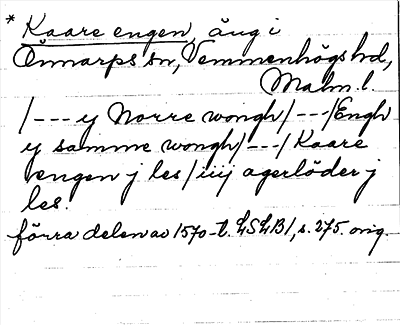 * Kaare engen, äng i
Önnarps sn, Vemmenhögs hd,
Malm. l.
/--- y Norre wongh/---/Engh
y samme wongh/---/Kaare
engen j les/iiij agerlöder j
les.
förra delen av 1570-t. LSLB1, s. 275. orig.